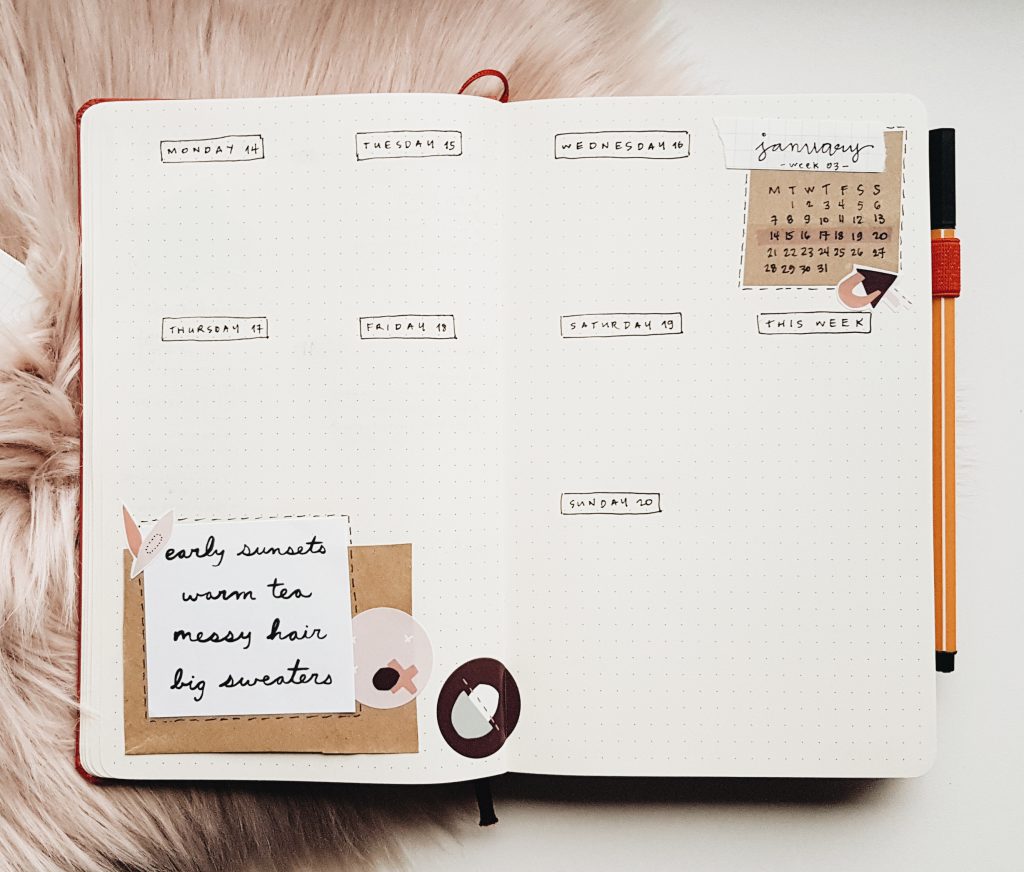 MONDAY 14
TUESDAY 15
WEDNESDAY 16
january
- week 03 -
M T W T F S S
1 2 3 4 5 6
7 8 9 10 11 12 13
14 15 16 17 18 19 20
21 22 23 24 25 26 27
28 29 30 31
THURSDAY 17
FRIDAY 18
SATURDAY 19
THIS WEEK
SUNDAY 20
early sunsets
warm tea
messy hair
big sweaters